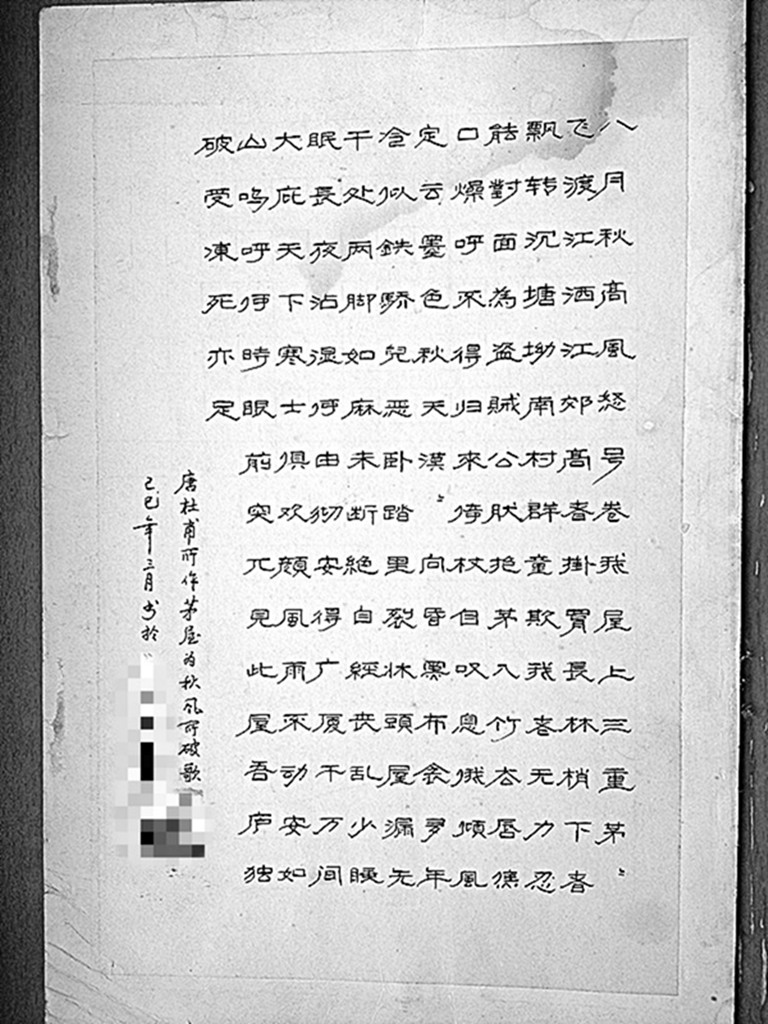 八月秋高風怒号卷我屋上三重茅〻
飞渡江洒江郊高者掛罥長林梢下者
飘转沉塘坳南村群童欺我老无力忍
能對面為盗賊公肰抱茅入竹去唇焦
口燥呼不得归來倚杖自叹息俄傾風
定云墨色秋天漠〻向昏黑布衾多年
冷似鉄驕兒恶卧踏里裂牀頭屋漏无
干处雨脚如麻未断絶自經丧乱少睡
眠長夜沾湿何由彻安得广厦千万间
大庇天下寒士俱欢颜風雨不动安如
山呜呼何時眼前突兀見此屋吾庐独
破受凍死亦定
唐杜甫所作茅屋为秋风所破歌
己巳年三月书於